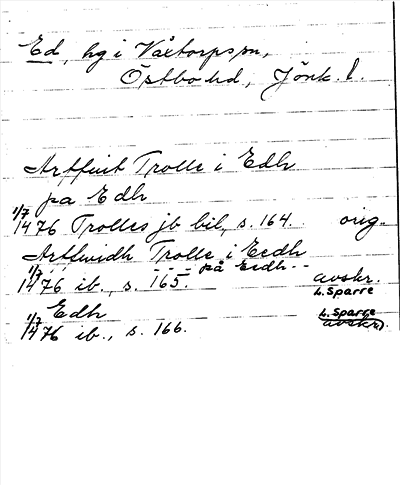 Ed, hg i Våxtorps sn,
Östbo hd, Jönk. l.
Artffuit Trolle i Edh
pa Edh
1/7 1476 Trolles jb bil, s. 164. orig.
Artfwidh Trolle i Eedh
- - - på Eedh - -
1/7 1476 ib., s. 165. avskr. L. Sparre
Edh
1/7 1476 ib., s. 166. L. Sparre avskr.